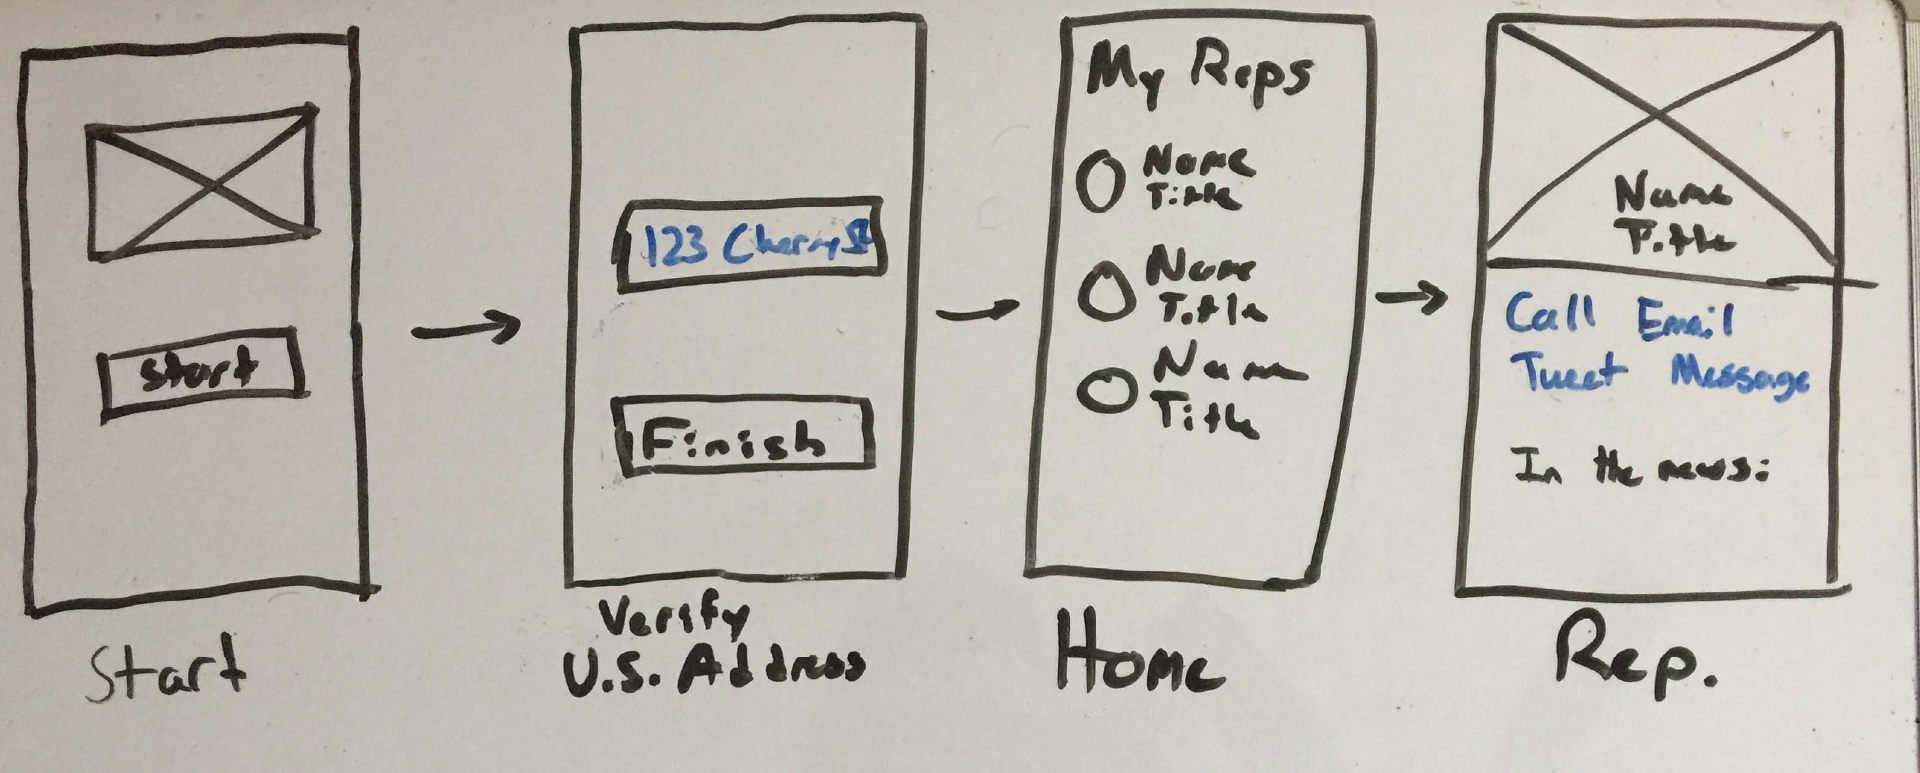 start
Start
123 Cherry St
Finish
Verify
U.S. Address
My Reps
Name
Title
Name
Title
Name
Title
Home
Name
Title
Call Email
Tweet Message
In the news:
Rep.